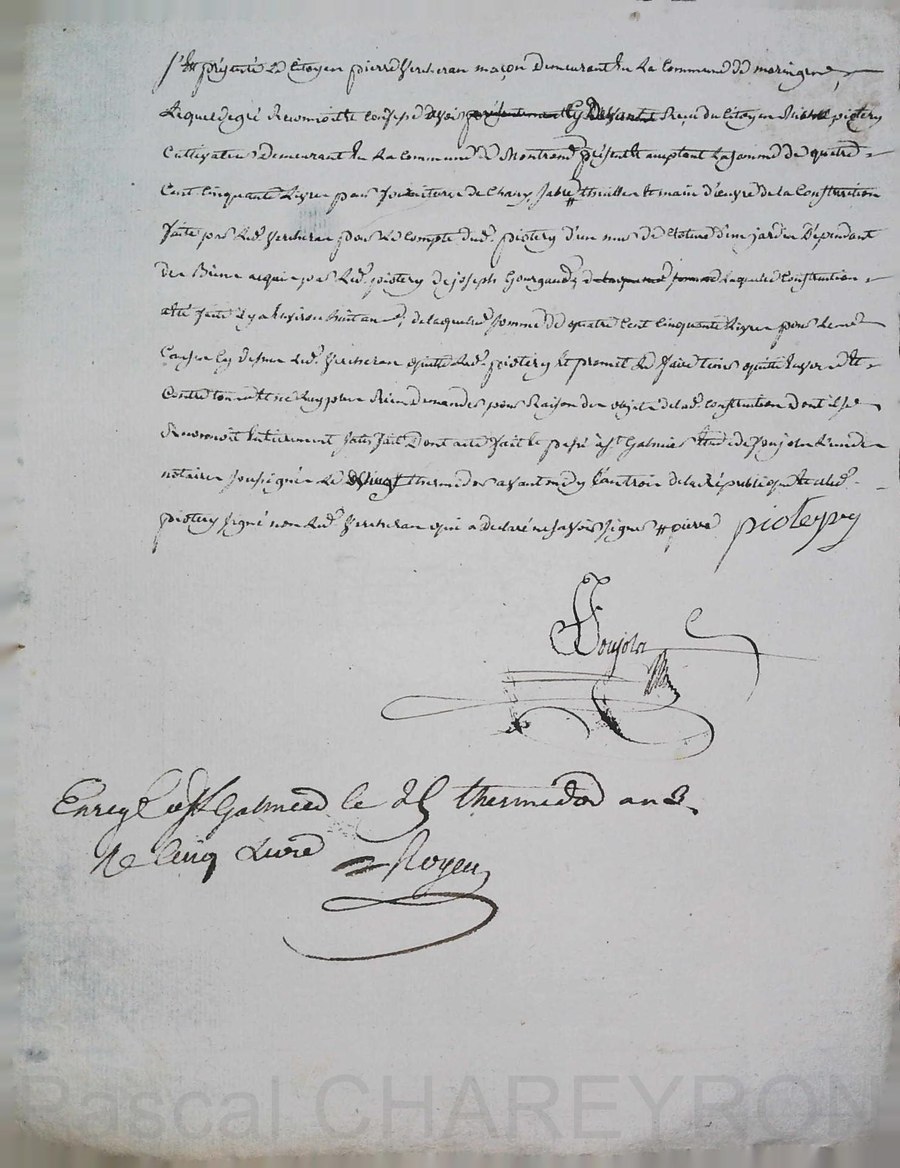 S'est présenté Le Citoyen pierre Vercheran maçon demeurant En La Commune de maringes,
Lequel de gré Reconnoit & confesse avoir présentement Cy devant Reçu du Citoyen pierre piotery
Cultivateur demeurant En La Commune de Montrond présent & acceptant La somme de quatre
Cent Cinquante Livres pour fourniture de Chaux, Sable, & main d'œuvre de la Construction
faite par Led. Vercheran pour Le Compte dud. piotery d'un mur de Cloture d'un jardin Dépendant
des Biens acquis par Led. piotery de joseph Gourgaud, de laquelle somme Laquelle Construction
a été faite il y a Environ huit ans, de laquelle somme de quatre Cent Cinquante Livres pour
Led. Vercheran quitte Led. piotery & promet Le faire tenir quitte Envers &
Contre tous & ne luy plus Rien demander pour Raison des objets de lad. Construction dont il se
Reconnoit Entierement satisfait Dont acte fait & passé à St Galmier Etude de Poujola L'un des
notaires soussignés Le Vingt thermidor avant midy L'an trois de la République & a led.
piotery signé non Led. Vercheran qui a Declaré ne savoir signer pierre pioterpy
Poujola
Enreg. à St Galmier le 25 thermidor an 3.
Re Cinq Livres Royer
Pascal CHAREYRON